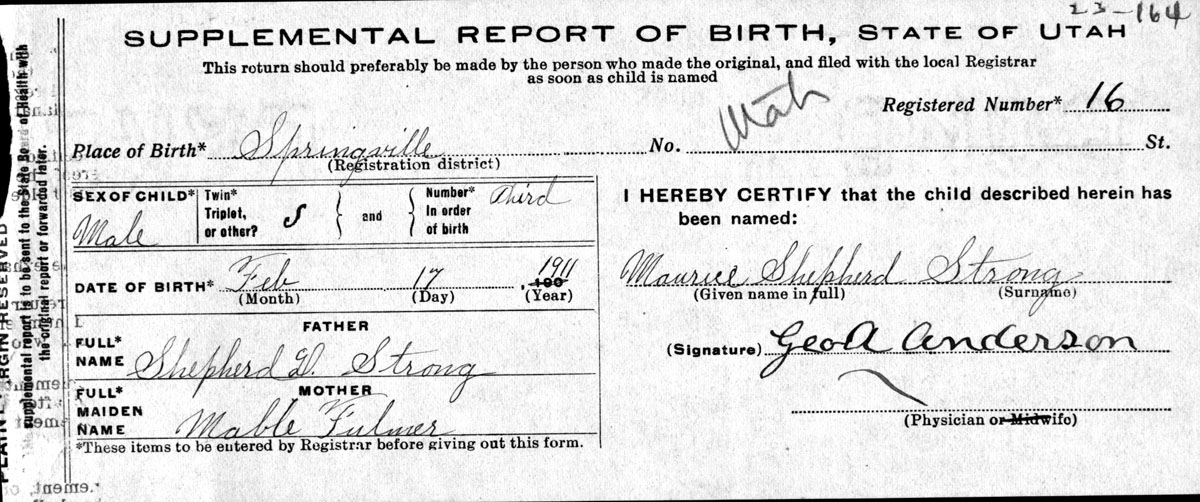 23-164
SUPPLEMENTAL REPORT OF BIRTH, STATE OF UTAH
This return should preferably be made by the person who made the original, and filed with the local Registrar
as soon as child is named
Utah
Registered Number* 16
Place of Birth* Springville No. St.
(Registration district)
SEX OF CHILD* Male
Twin*
Triplet,
or other? S
and
Number* Third
In order
of birth
DATE OF BIRTH* Feb 17, 190 1911
(Month) (Day) (Year)
FATHER
FULL*
NAME Shepherd D. Strong
MOTHER
FULL*
MAIDEN
NAME Mable Fulmer
*These items to be entered by Registrar before giving out this form.
I HEREBY CERTIFY that the child described herein has
been named:
Maurice Shepherd Strong
(Given name in full) (Surname)
(Signature) Geo A Anderson
(Physician or Midwife)
PLAIN MARGIN RESERVED
supplemental report is to be sent to the State Board of Health with
the original report or forwarded later.